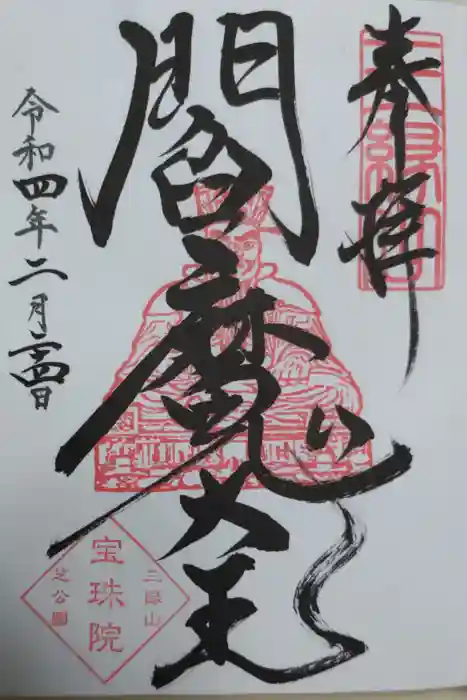 奉拝
閻魔大王
令和四年二月二四日
三縁山
宝珠院
芝公園